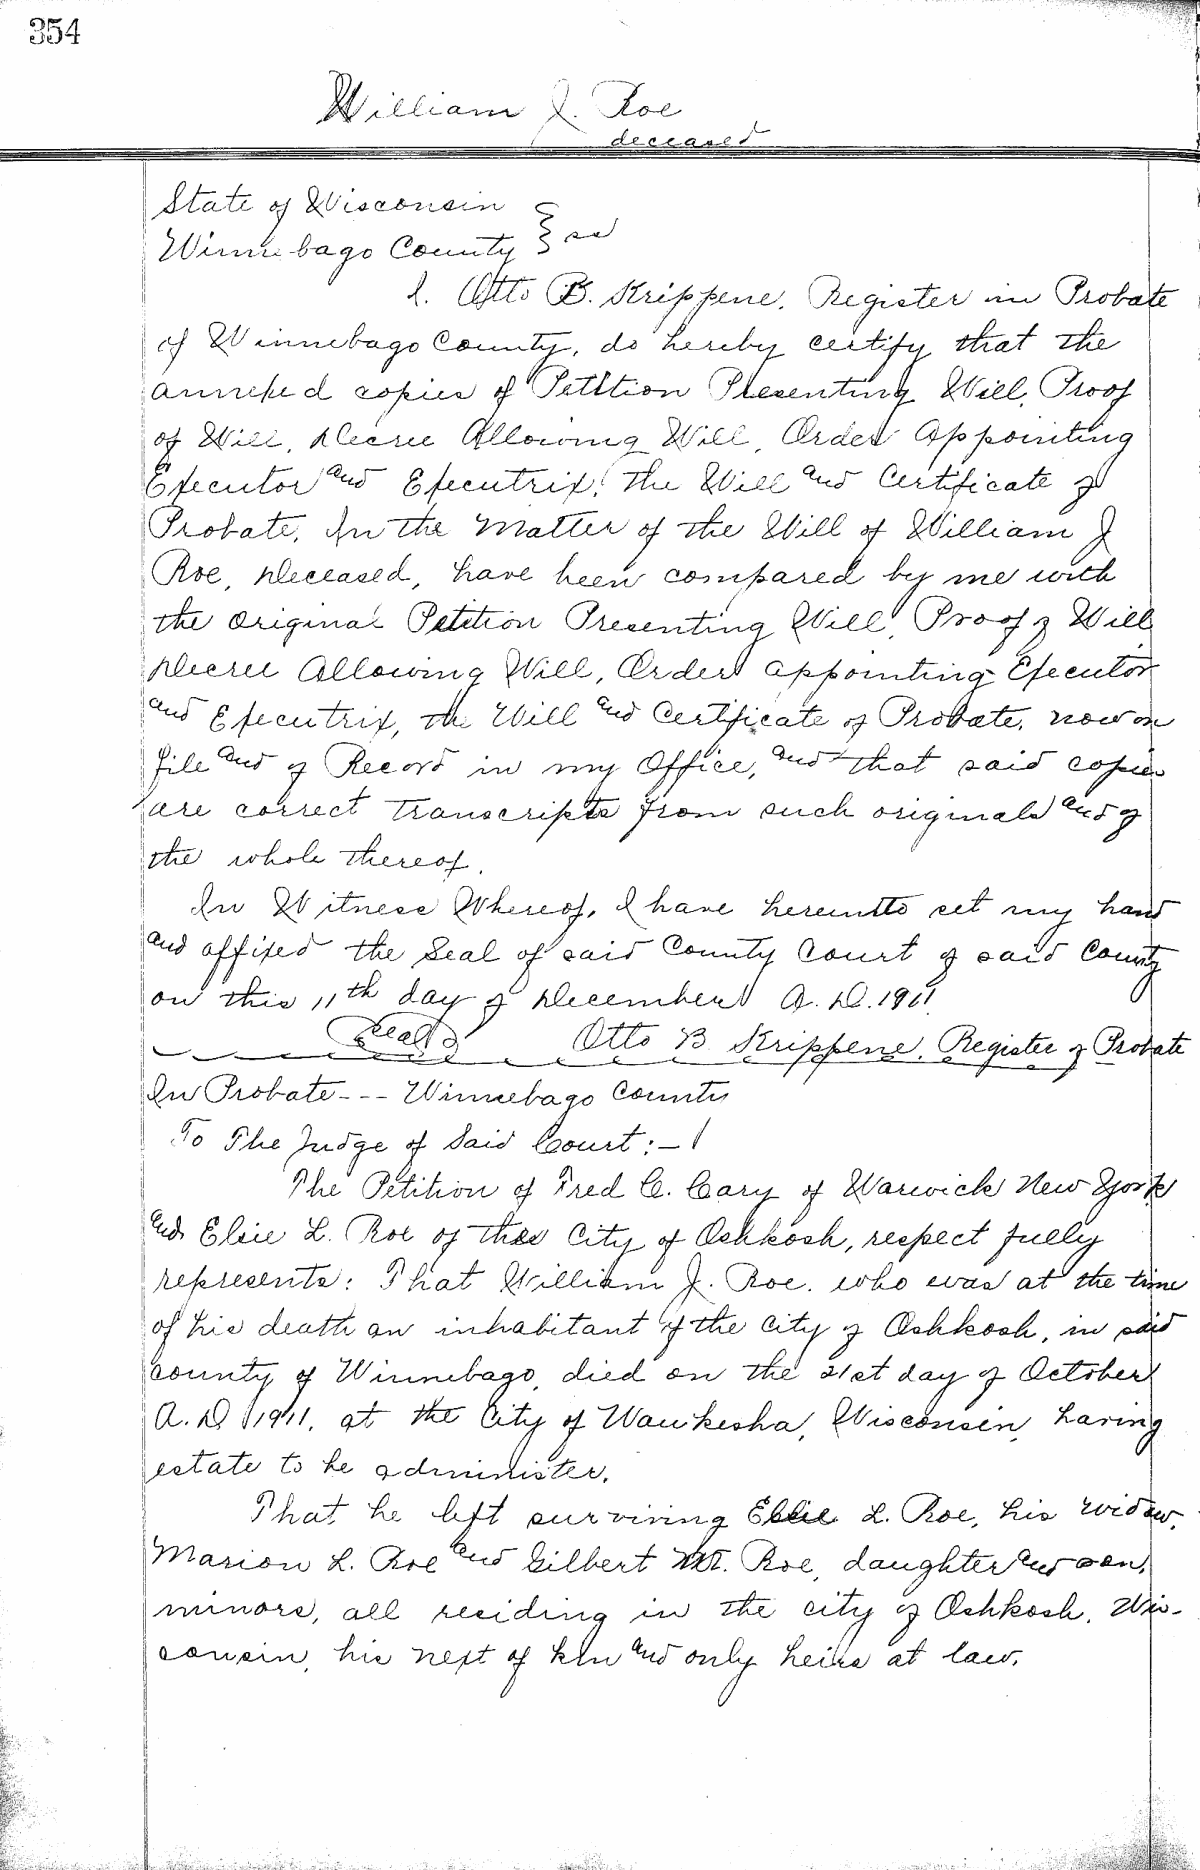 354
William J. Roe
deceased
State of Wisconsin
Winnebago County } ss
I. Otto B. Krippene, Register in Probate
of Winnebago County, do hereby certify that the
annexed copies of Petition Presenting Will, Proof
of Will, Decree Allowing Will, Order Appointing
Executor and Executrix, the Will and Certificate of
Probate, In the Matter of the Will of William J
Roe, Deceased, have been compared by me with
the original Petition Presenting Will, Proof of Will
Decree Allowing Will, Order appointing Executor
and Executrix, the Will and Certificate of Probate, now on
file and of Record in my Office, and that said copies
are correct transcripts from such originals and of
the whole thereof.
In Witness Whereof, I have hereunto set my hand
and affixed the Seal of said County Court of said County
on this 11th day of December A. D. 1911
Seal Otto B Krippene, Register of Probate
In Probate --- Winnebago County
To The Judge of Said Court:-
The Petition of Fred C. Cary of Warwick New York
and Elsie L. Roe of the City of Oshkosh, respect fully
represents: That William J. Roe. who was at the time
of his death an inhabitant of the city of Oshkosh, in said
county of Winnebago, died on the 21st day of October
A. D 1911, at the City of Waukesha, Wisconsin, having
estate to be administer.
That he left surviving Elsie L. Roe, his widow,
Marion L. Roe and Gilbert Roe, daughter and son,
minors, all residing in the city of Oshkosh, Wis-
consin, his next of kin and only heirs at law.